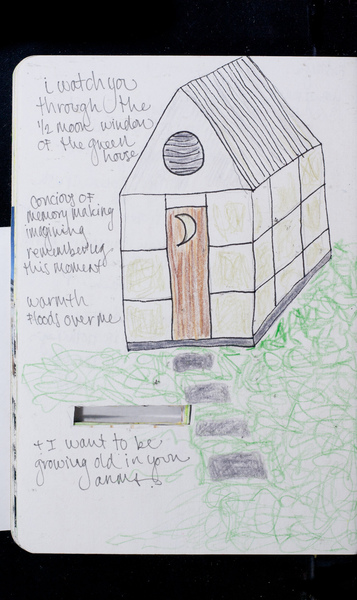 i watch you
through the
1/2 moon window
of the green
house
concious of
memory making
imagining
remembering
this moment
warmth
floods over me
+ I want to be
growing old in your
arms